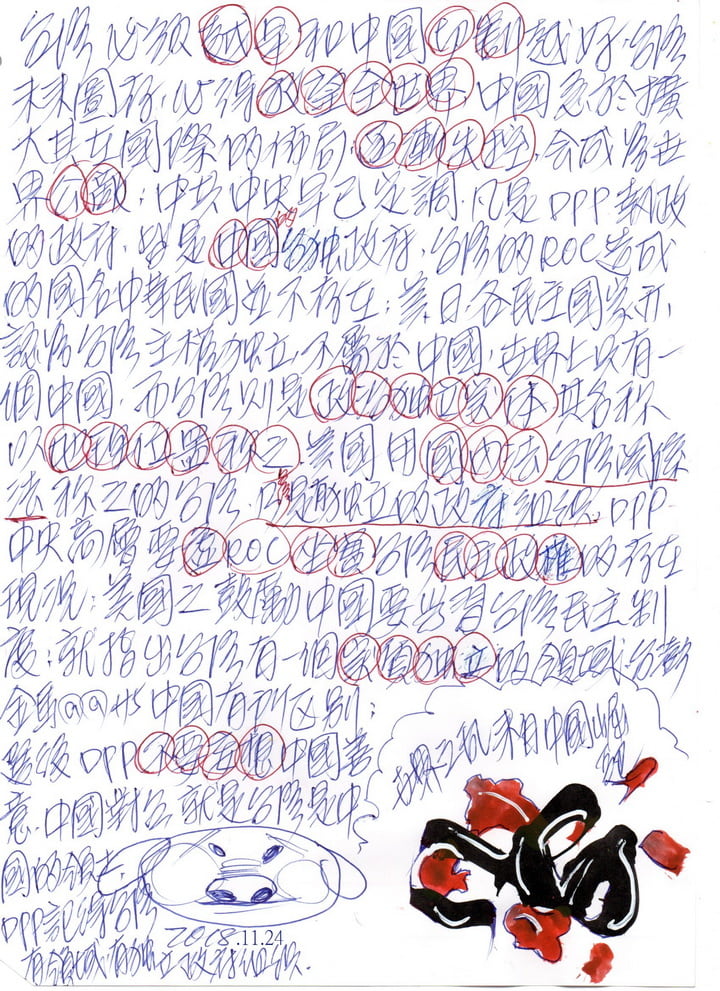 台灣必須越早和中國切割越好.台灣
未來圖存,必得放諸全世界,中國急於擴
大其在國際的佈局,不斷失控,会成為世
界公敵;中共中央早已定調,凡是DPP執政
的政府,皆是中國的台独政府,台灣的ROC造成
的國名中華民國並不存在;美,日各民主國家承
認為台灣主權独立,不屬於中國;世界上只有一
個中國,而台灣則是政治独立实体,其名称
以地理位置称之,美國用國內法台灣関係
法称之的台灣,只是有独立的政府組織,DPP
中央高層要
ROC
台灣民主政權的存在
現況;美國之鼓勵中國要学習台灣民主制
度;就指出台灣有一個实質独立的領域,台澎
金馬@@与中國有所区別;
DPP不要妄想中國善
意,中國對台,就是台灣是中
國的領土,
DPP記得台灣
有領域,有独立政府組織.
來自中國
2018.11.24